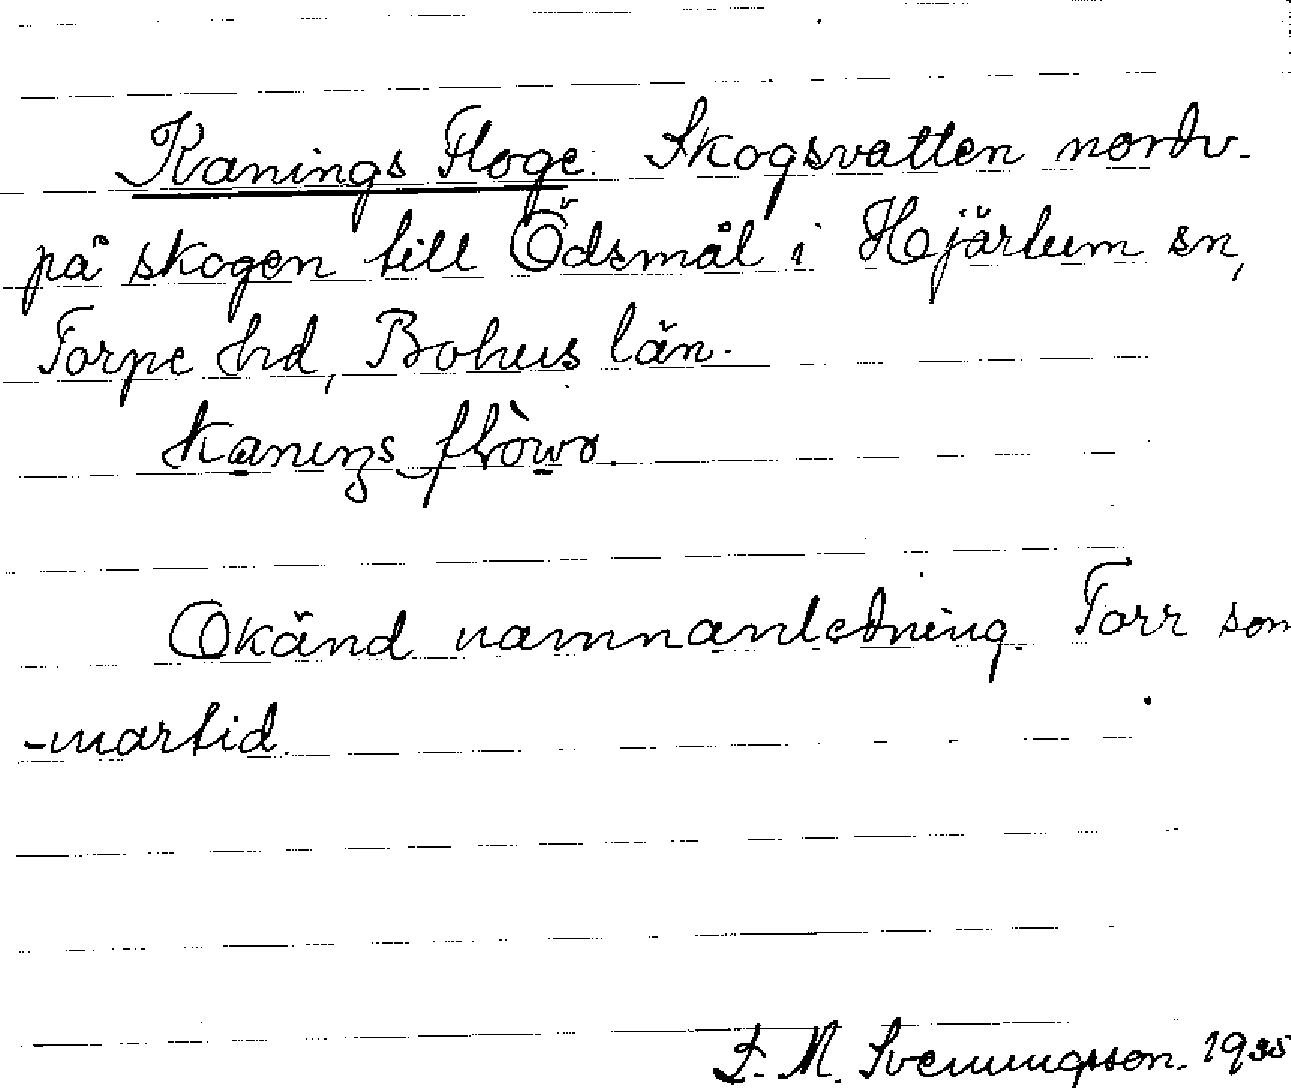 Kanings Floge. Skogsvatten nordv.
på skogen till Ödsmål i Hjärtum sn,
Torpe hd, Bohus län.
Okänd namnanledning. Torr som
-martid.
S. M. Svenungsson. 1935